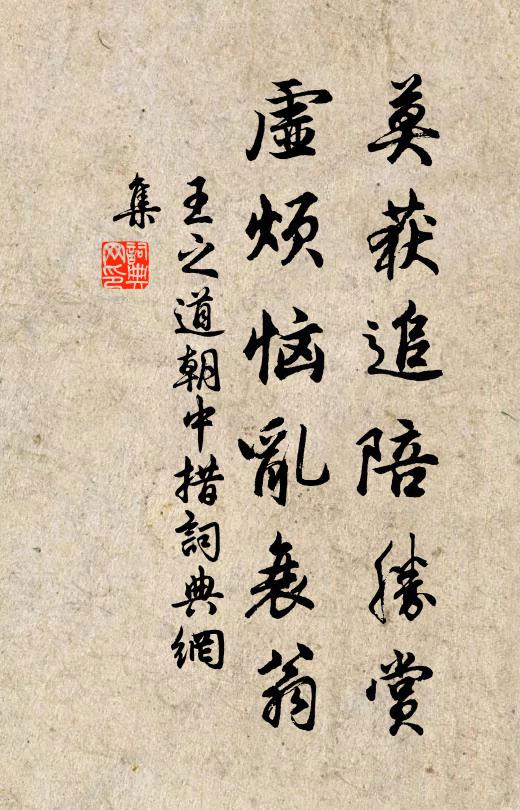 莫获追陪勝赏
虚烦恼亂衰翁
王之道朝中措詞典網
集
詞典网印